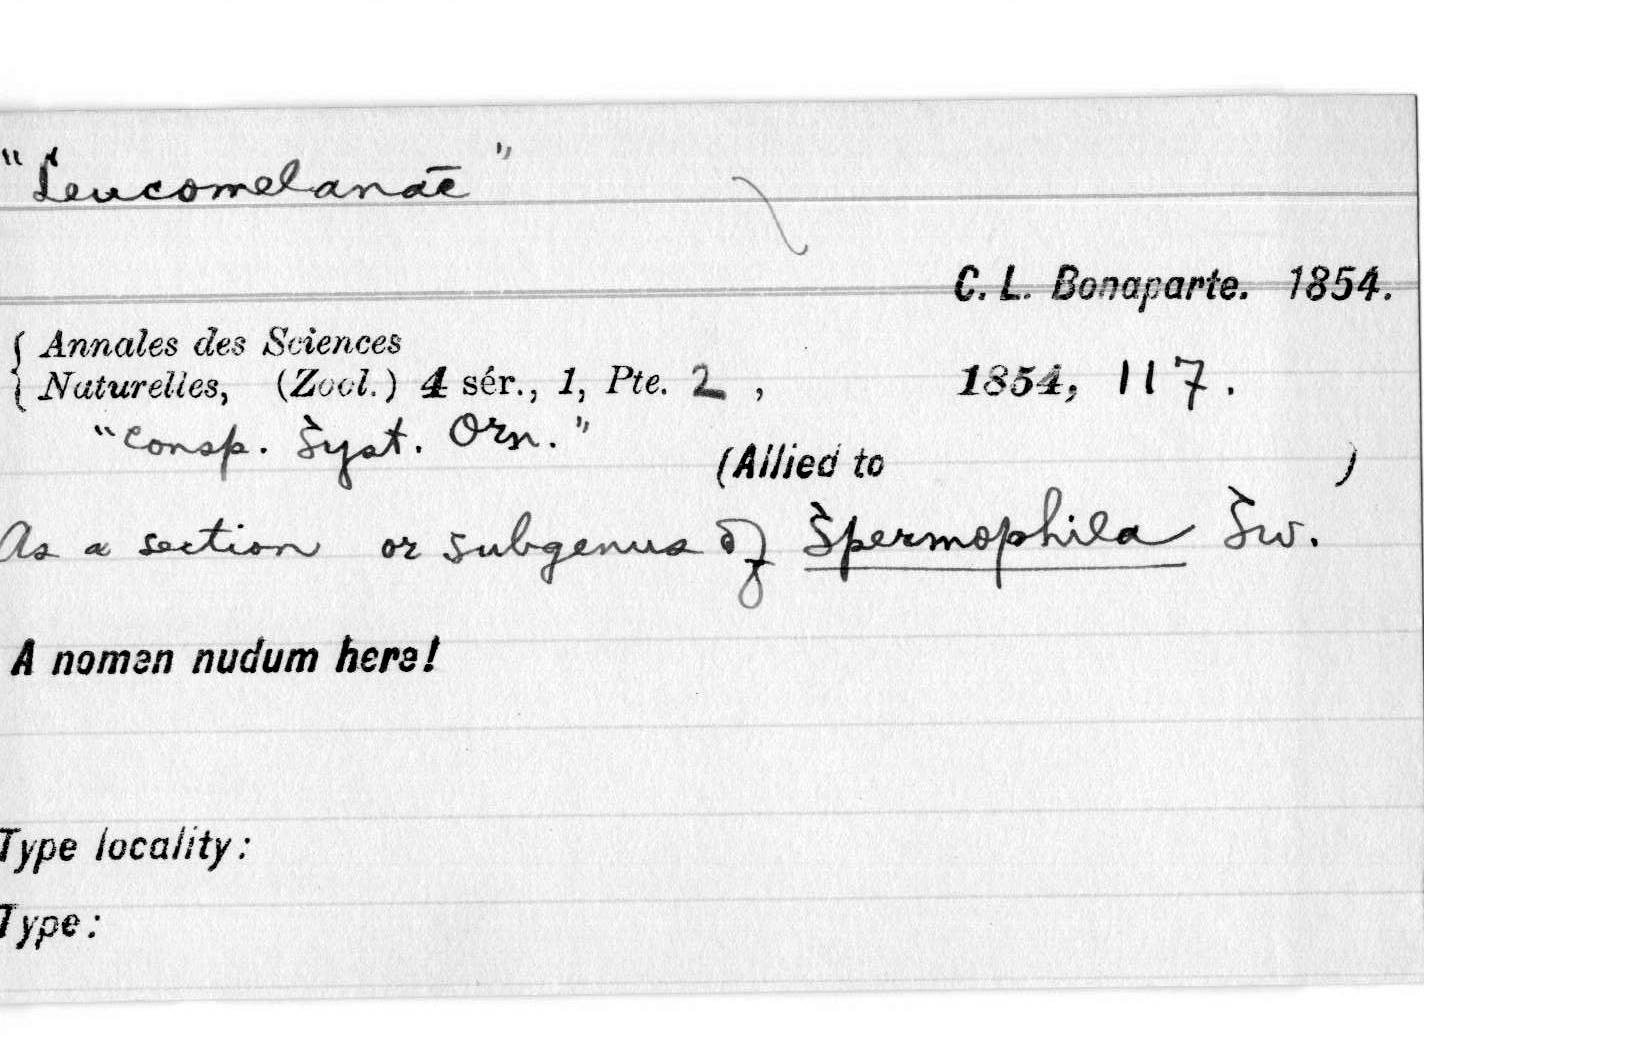 "Leucomelanae"
C. L. Bonaparte. 1854.
{ Annales des Sciences
Naturelles, (Zool.) 4 sér., 1, Pte. 2 , 1854, 117.
"Consp. Syst. Orn."
(Allied to )
As a section or subgenus of Spermophila Sw.
A nomen nudum here!
Type locality:
Type: